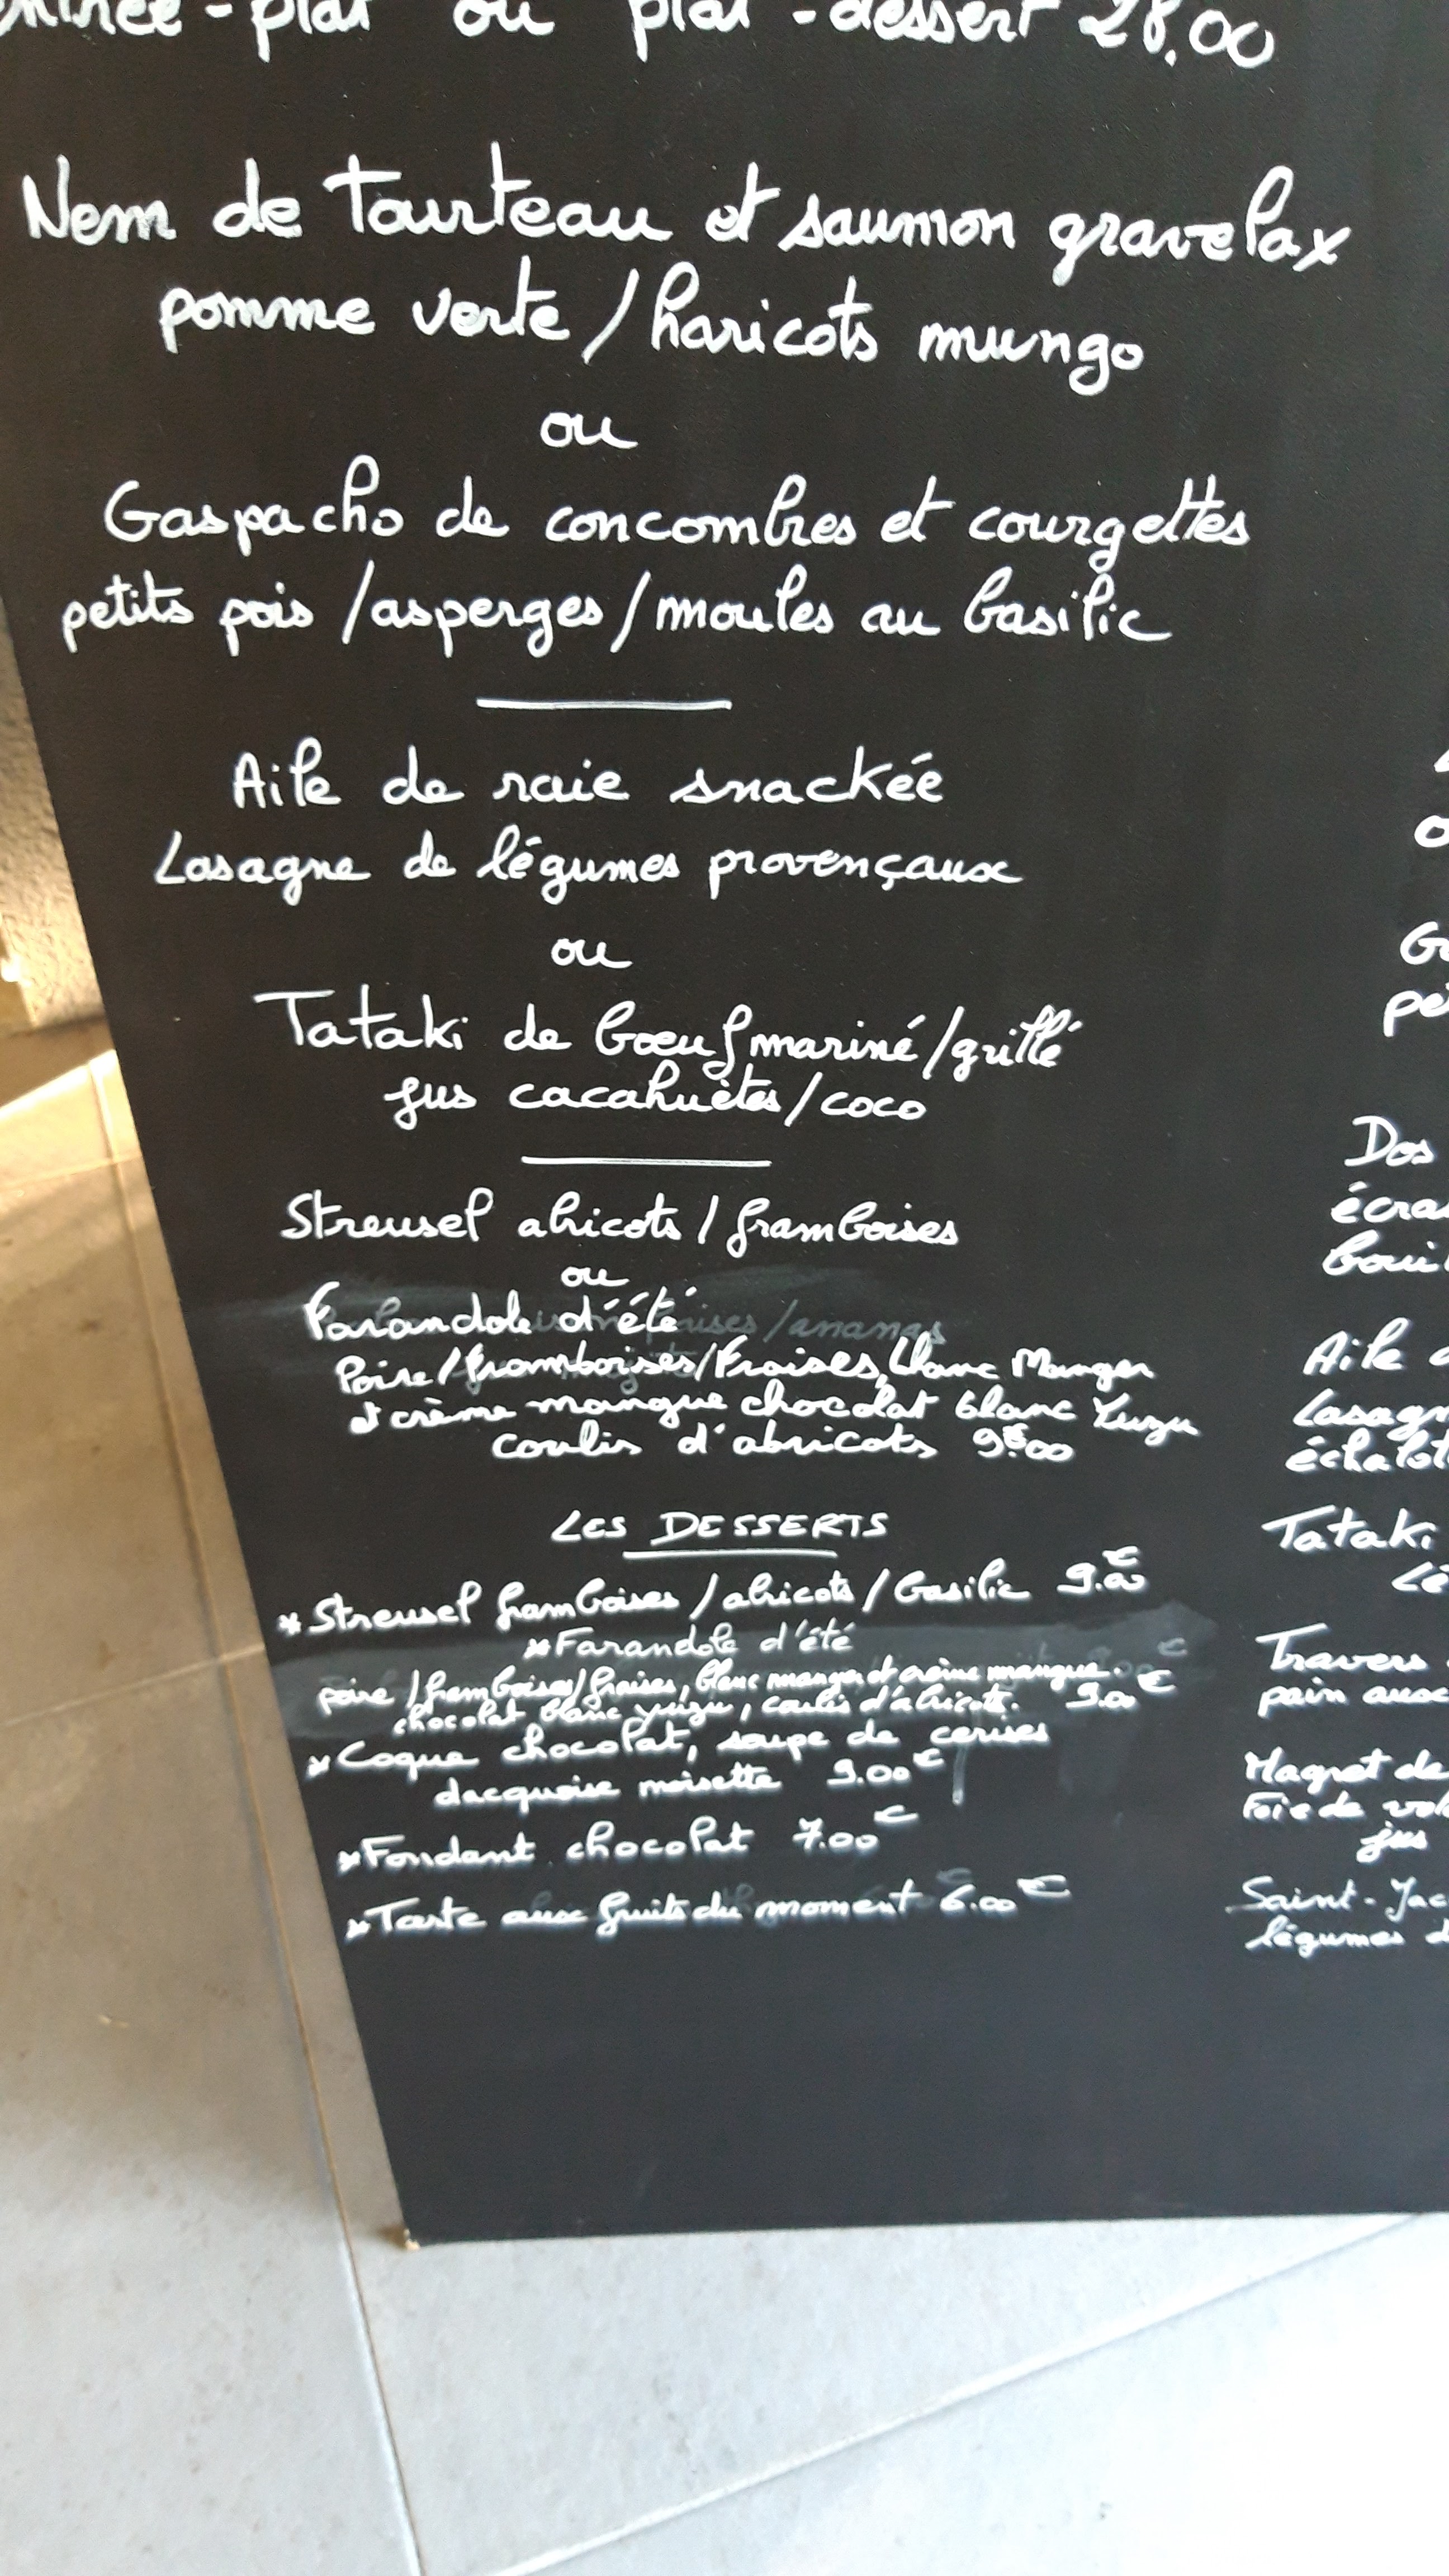 entrée-plat ou plat-dessert 28.00
Nem de Tourteau et saumon gravelax
pomme verte / haricots mungo
ou
Gaspacho de concombres et courgettes
petits pois / asperges / moules au basilic
Aile de raie snackée
Lasagne de légumes provençaux
ou
Tataki de bœuf mariné / grillé
jus cacahuètes / coco
Streusel abricots / framboises
ou
Farandole d'été
Poire / Framboises / Fraises, blanc Manger
et crème mangue chocolat blanc Yuzu
coulis d'abricots 9€00
LES DESSERTS
* Streusel framboises / abricots / basilic 9.00€
* Farandole d'été
poire / framboises / fraises, blanc manger et crème mangue.
chocolat blanc yuzu, coulis d'abricots. 9.00€
* Coque chocolat, soupe de cerises
dacquoise noisette 9.00€
* Fondant chocolat 7.00€
* Tarte aux fruits du moment 6.00€
Dos
écra
boui
Aile d
Lasagn
échalot
Tataki
Lé
Travers
pain aux
Magret de
Foie de vol
jus
Saint-Jac
légumes d